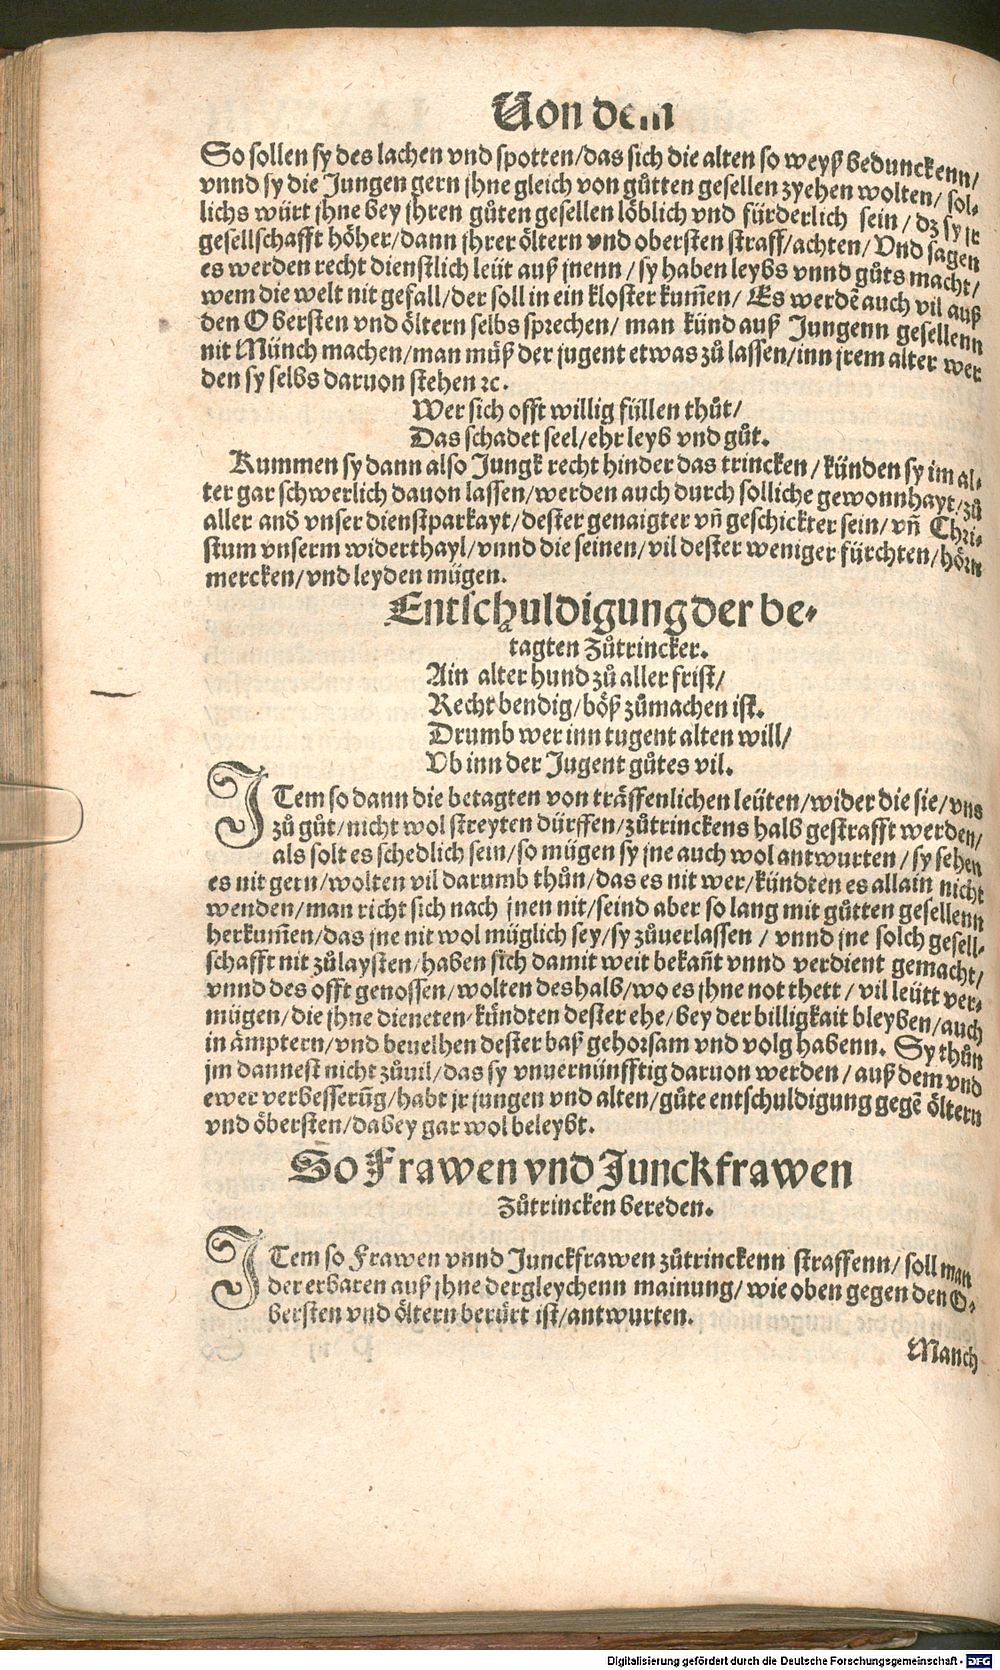 Von dem
So sollen sy des lachen vnd spotten/das sich die alten so weyß beduncken/
vnnd sy die Jungen gern jhne gleich von gůtten gesellen zyehen wolten/ sol-
lichs würt jhne bey jhren gůten gesellen löblich vnd fürderlich sein/ dz sy jr
gesellschafft höher/dann jhrer öltern vnd obersten straff/achten/ Vnd sagen
es werden recht dienstlich leüt auß jnenn/sy haben leybs vnnd gůts macht/
wem die welt nit gefall/der soll in ein kloster kum̃en/ Es werdẽ auch vil auß
den Obersten vnd öltern selbs sprechen/ man künd auß Jungenn gesellenn
nit Münch machen/man müß der jugent etwas zů lassen/inn jrem alter wer
den sy selbs daruon stehen ꝛc.
Wer sich offt willig füllen thůt/
Das schadet seel/ehr leyb vnd gůt.
Kummen sy dann also Jungk recht hinder das trincken/künden sy im al-
ter gar schwerlich dauon lassen/werden auch durch solliche gewonnhayt/zů
aller and̉ vnser dienstparkayt/dester genaigter vñ geschickter sein/vñ Chri-
stum vnserm widerthayl/vnnd die seinen/vil dester weniger fürchten/hörn
mercken/vnd leyden mügen.
Entschuldigung der be-
tagten Zůtrincker.
Ain alter hund zů aller frist/
Recht bendig/böß zůmachen ist.
Drumb wer inn tugent alten will/
Vb inn der Jugent gůtes vil.
ITem so dann die betagten von träffenlichen leüten/wider die sie/vns
zů gůt/nicht wol streyten dürffen/zůtrinckens halb gestrafft werden/
als solt es schedlich sein/so mügen sy jne auch wol antwurten/sy sehen
es nit gern/wolten vil darumb thůn/das es nit wer/kündten es allain nicht
wenden/man richt sich nach jnen nit/seind aber so lang mit gůtten gesellenn
herkum̃en/das jne nit wol müglich sey/sy zůuerlassen/ vnnd jne solch gesell-
schafft nit zůlaysten/haben sich damit weit bekañt vnnd verdient gemacht/
vnnd des offt genossen/wolten deshalb/wo es jhne not thett/ vil leütt ver-
mügen/die jhne dieneten/kündten dester ehe/bey der billigkait bleyben/auch
in ämptern/vnd beuelhen dester baß gehorsam vnd volg habenn. Sy thůn
jm dannest nicht zůuil/das sy vnuernünfftig daruon werden/auß dem vnd
ewer verbesserũg/habt jr jungen vnd alten/gůte entschuldigung gegẽ öltern
vnd öbersten/dabey gar wol beleybt.
So Frawen vnd Junckfrawen
Zůtrincken bereden.
ITem so Frawen vnnd Junckfrawen zůtrinckenn straffenn/ soll man
der erbaren auß jhne dergleychenn mainung/wie oben gegen den O-
bersten vnd öltern berürt ist/antwurten.
Manch
Digitalisierung gefördert durch die Deutsche Forschungsgemeinschaft - DFG